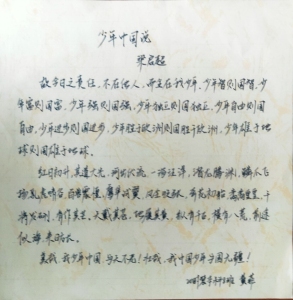 少年中国说
梁启超
故今日之责任,不在他人,而全在我少年,少年智则国智,少
年富则国富,少年强则国强,少年独立则国独立,少年自由则国
自由,少年进步则国进步,少年胜于欧洲则国胜于欧洲,少年雄于地
球则国雄于地球。
红日初升,其道大光,河出伏流,一泻汪洋,潜龙腾渊,鳞爪飞
扬,乳虎啸谷,百兽震惶,鹰隼试翼,风尘吸张,奇花初胎,矞矞皇皇,干
将发硎,有作其芒,天戴其苍,地履其黄,纵有千古,横有八荒,前途
似海,来日方长。
美哉,我少年中国,与天不老!壮哉,我中国少年,与国无疆!